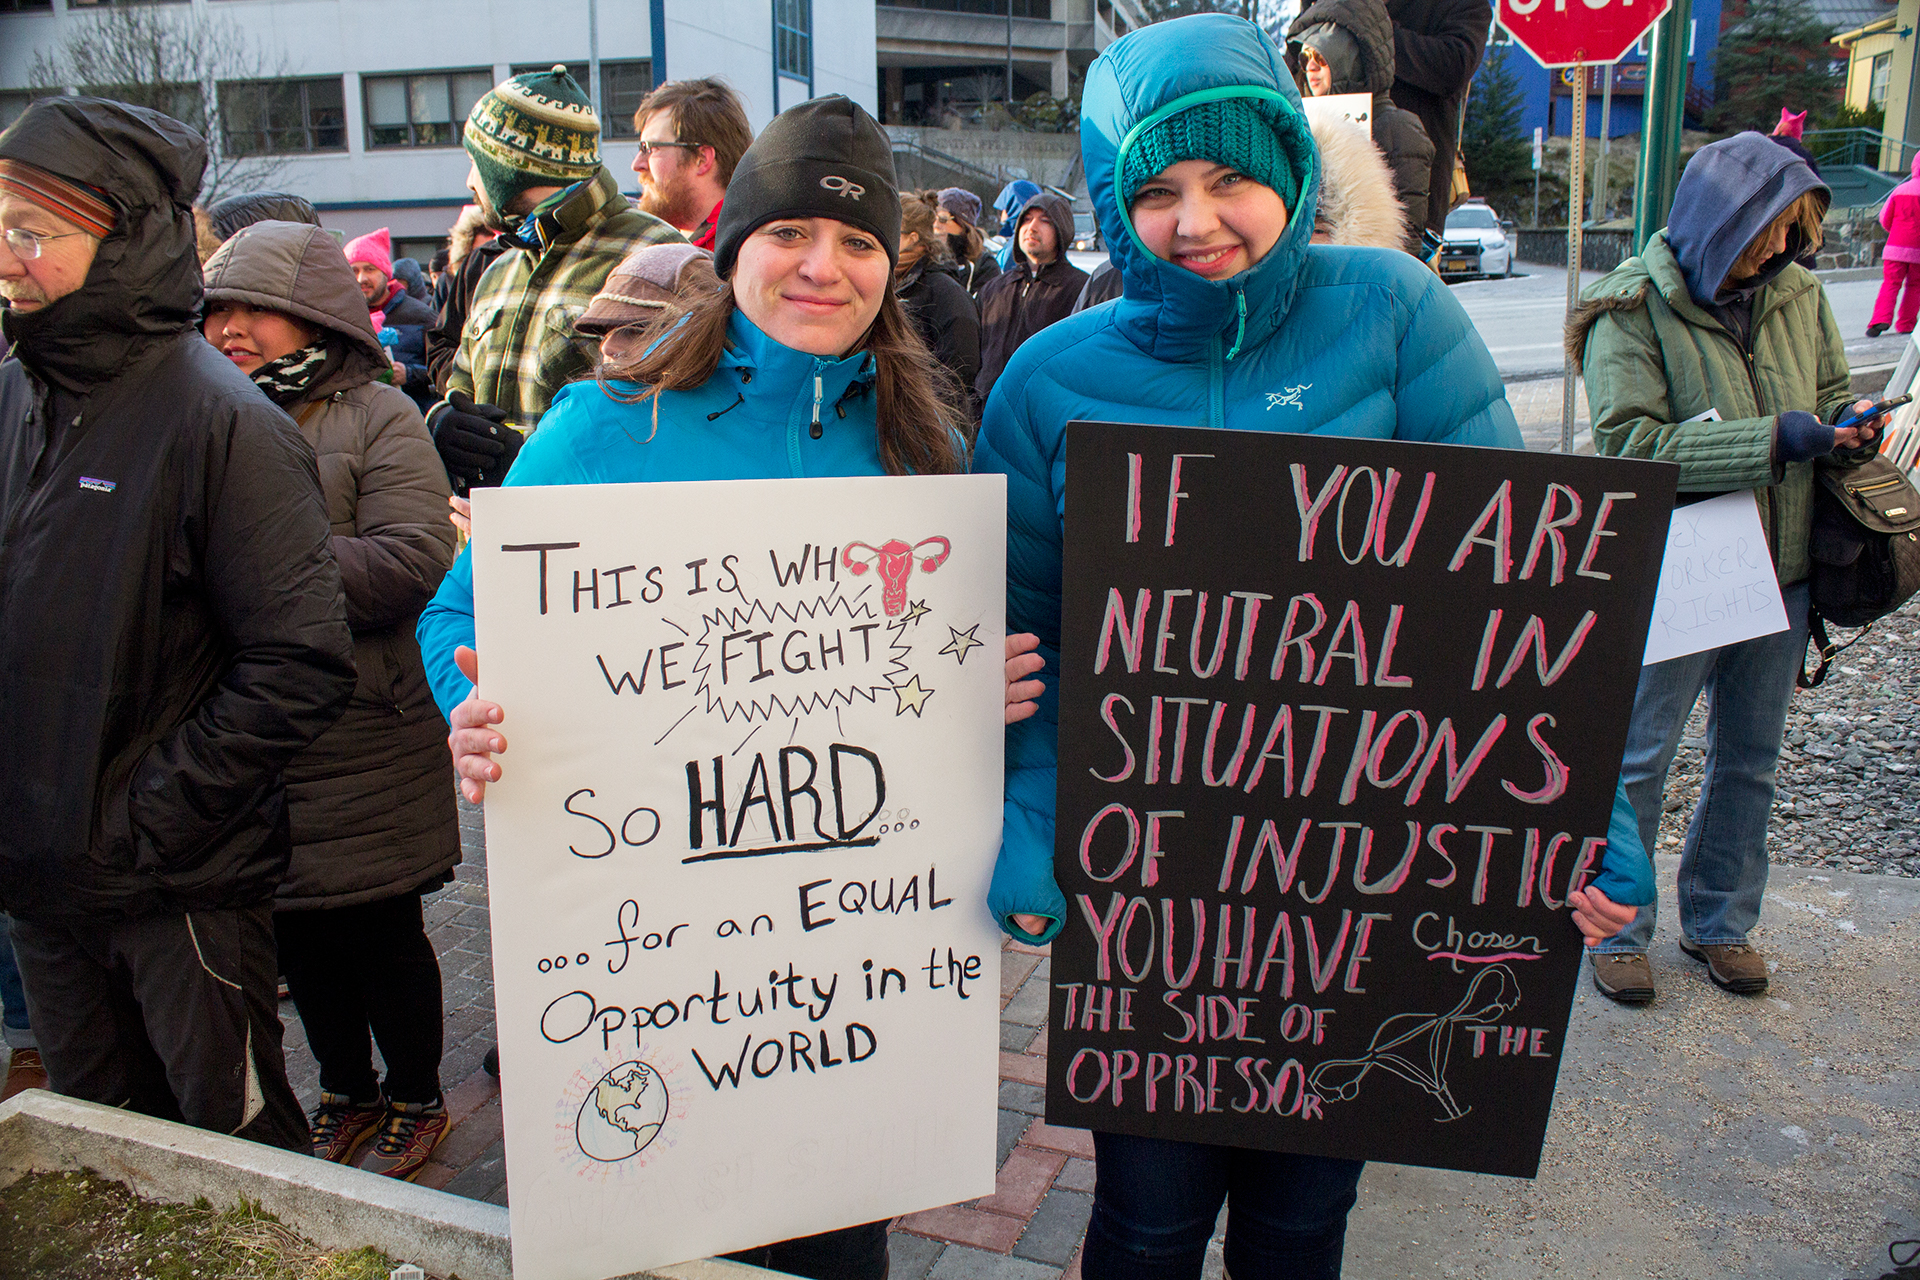 STOP
OR
patagonia
THIS IS WHY
WE FIGHT
SO HARD...
...for an EQUAL
Opportunity in the
WORLD
IF YOU ARE
NEUTRAL IN
SITUATIONS
OF INJUSTICE
YOU HAVE Chosen
THE SIDE OF THE
OPPRESSOR
SEX
WORKER
RIGHTS